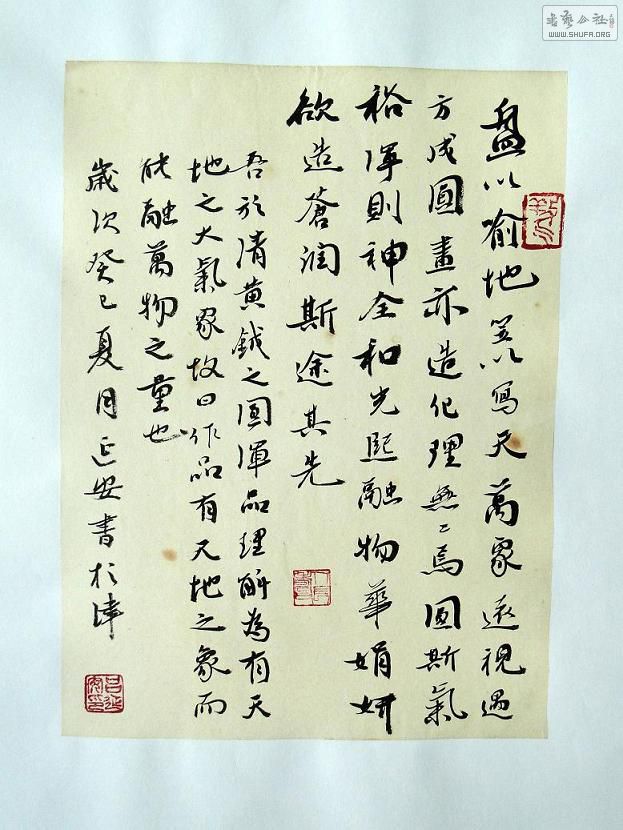 盤以喻地笠以寫天萬象遠視遇
方成圓畫亦造化理無二焉圓斯氣
裕渾則神全和光熙融物華娟妍
欲造蒼潤斯途其先
吾於清黄鉞之圓渾品理解為有天
地之大氣象故曰作品有天地之象而
能融萬物之量也
歲次癸巳夏月延安書於津
吕延安印
WWW.SHUFA.ORG